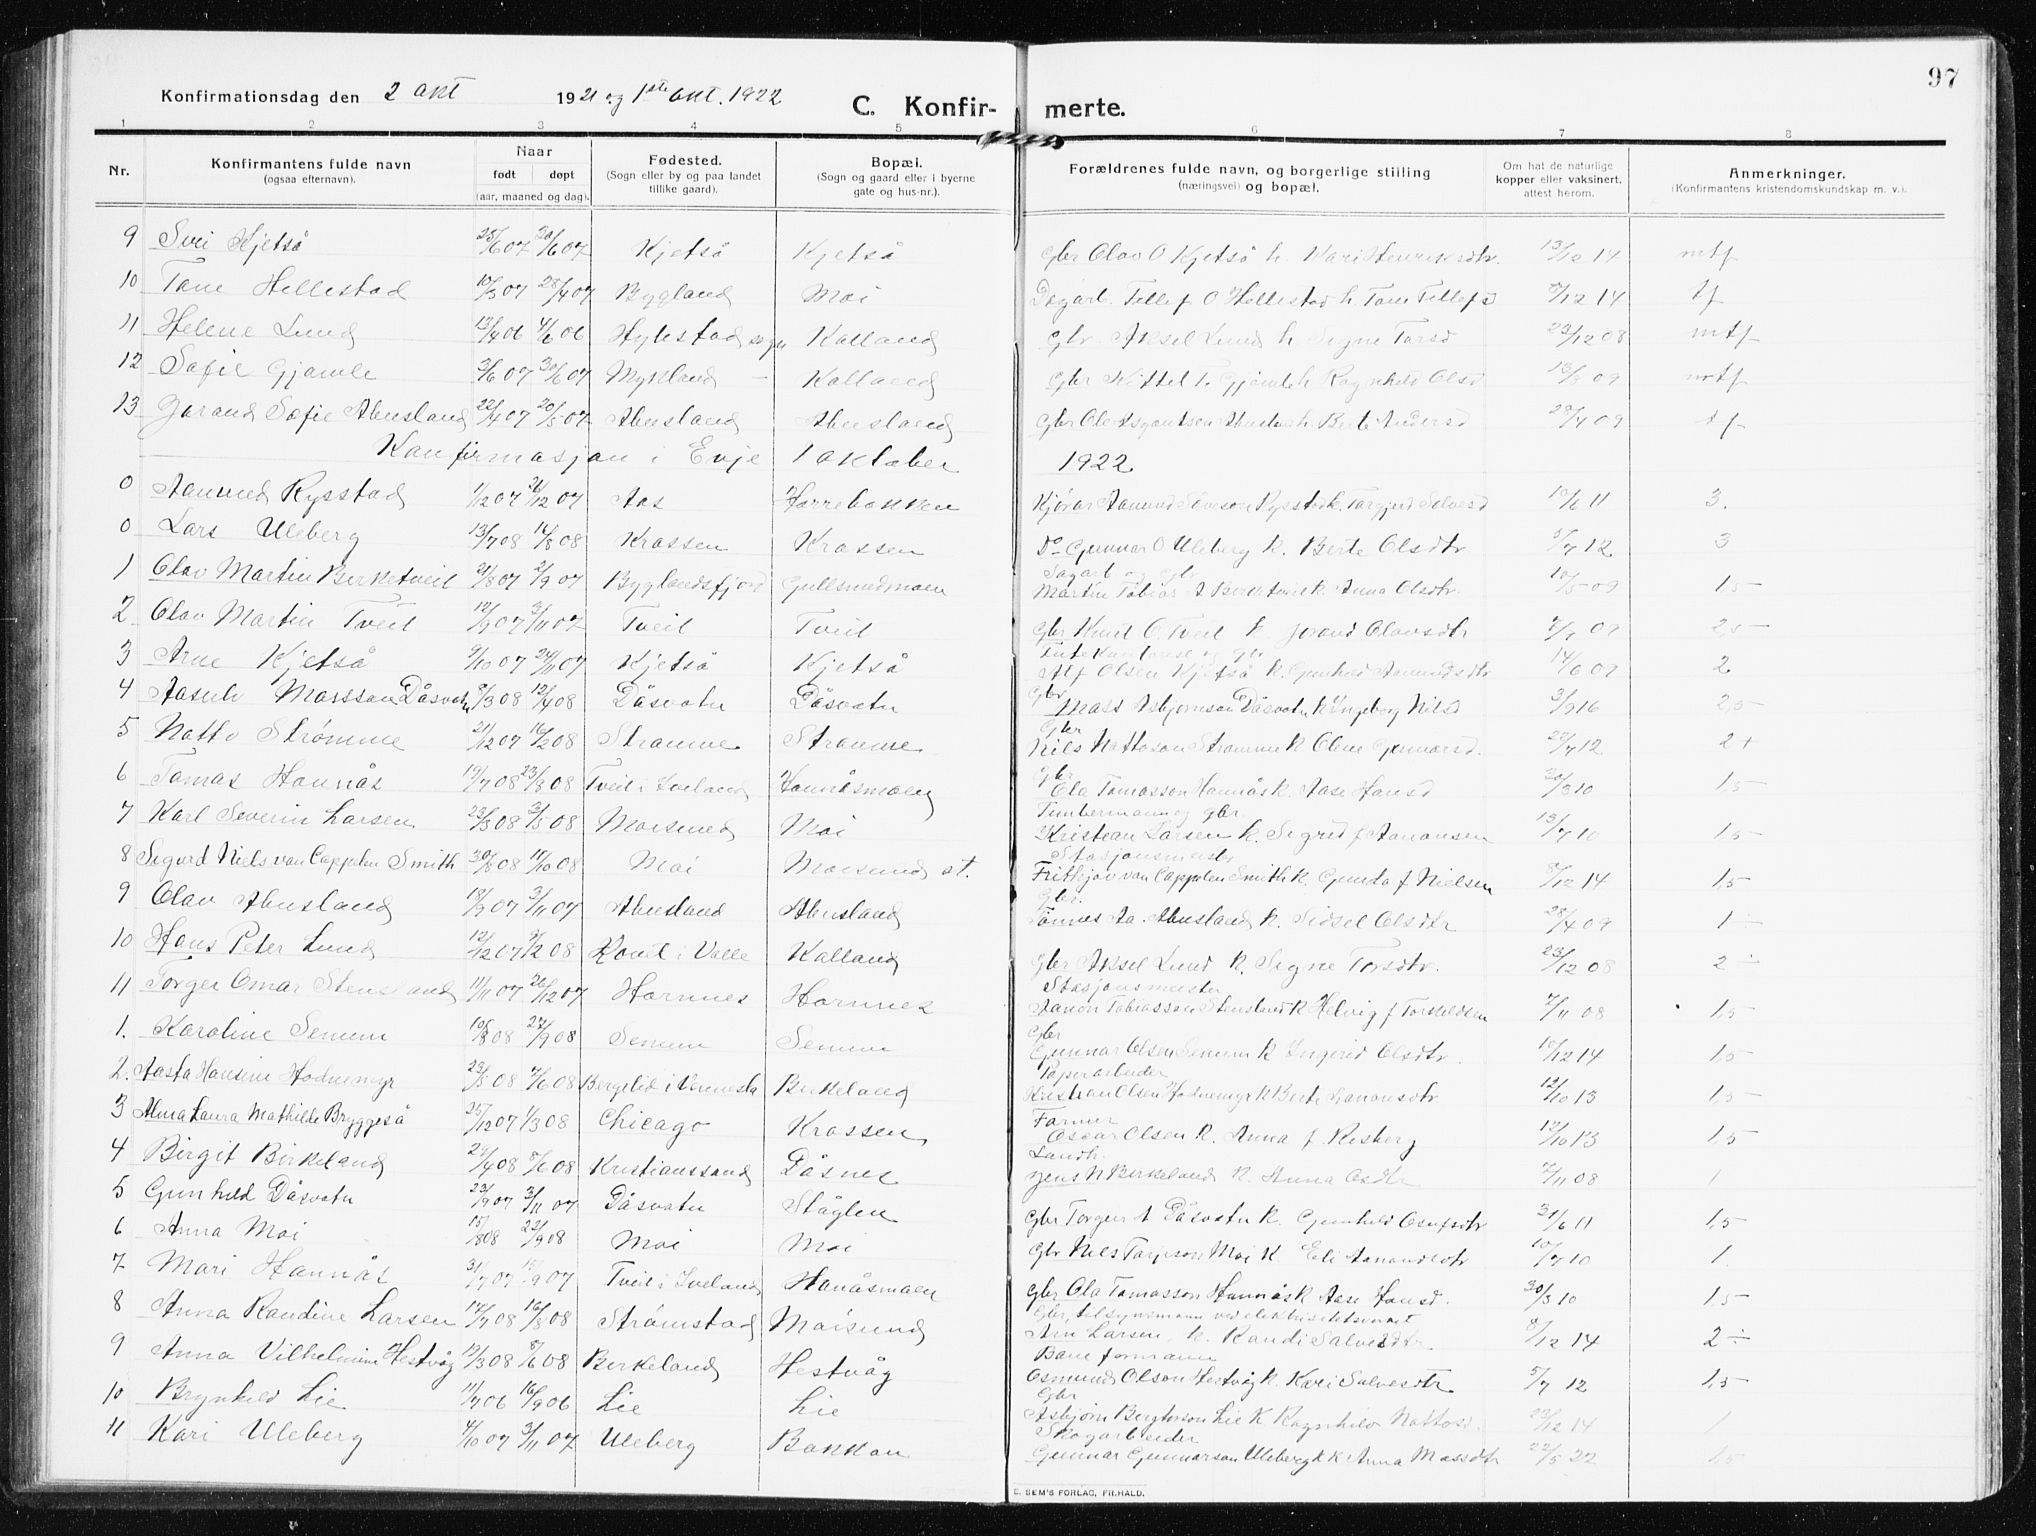 97
Konfirmationsdag den 2 okt 1921 og 1ste okt. 1922 C. Konfir- merte.
1 2 3 4 5 6 7 8
Nr. Konfirmantens fulde navn (ogsaa efternavn). Naar født døpt (aar, maaned og dag). Fødested. (Sogn eller by og paa landet tillike gaard). Bopæl. (Sogn og gaard eller i byerne gate og hus-nr.). Forældrenes fulde navn, og borgerlige stilling (næringsvei) og bopæl. Om hat de naturlige kopper eller vaksinert, attest herom. Anmerkninger. (Konfirmantens kristendomskundskap m. v.).
9 Kjetså 25/6 07 Kjetså Kjetså Gbr Olav O Kjetså h. Kari Henriksdtr. 13/12 14 mtf
10 Tone Hellestad 10/3 07 28/4 07 Bygland Moi Dagarb. Tellef O Hellestad h 8/12 14 tf
11 Helene Lund 13/4 06 4/6 06 Hylestad sogn Kalland Gbr. Aksel Lund h Signe Torsd 23/12 08 mtf
12 Safie Gjamle 3/6 07 30/6 07 Mykland – Kalland Gbr Kittel T. Gjamle h Ragnhild Olsd 13/3 09 mtf
13 Jorand Sofie Abusland 22/4 07 20/5 07 Abusland Abusland Gbr Ole Abusland h. Berte Andersd 28/4 09 tf
Konfirmasjon i Evje 1 oktober 1922
0 Aamund Rysstad 1/12 07 26/12 07 Aas Horrebakken Kjørar Aamund Rysstad k. Torgjerd Salvesd 10/6 11 3.
0 Lars Uleberg 13/7 08 14/8 08 Krossen Krossen Do Gunnar O Uleberg k. Berte Olsdtr 5/7 12 3
Sagarb og gbr
1 Olav Martin Berketveit 21/8 07 2/9 07 Byglandsfjord Gullsmedmoen Martin Tobias A Berketveit k. Anna Olsdtr. 10/5 09 1,5
2 Olav Martin Tveit 12/9 07 3/11 07 Tveit Tveit Gbr Knut O. Tveit k. Jorand Olavsdtr 8/9 09 2,5
3 Arne Kjetså 9/10 07 24/11 07 Kjetså Kjetså Alf Olsen Kjetså k. Gunhild Aamundsdtr 14/6 09 2
Gbr
4 Aasulv Massson Dåsvatn 8/3 08 12/4 08 Dåsvatn Dåsvatn Mass Asbjørnson Dåsvatn k Ingeborg Nilsd 3/9 16 2,5
Gbr
5 Natto Strømme 21/12 07 16/2 08 Strømme Strømme Nils Nattoson Strømme k Oline Gunnarsd. 27/7 12 2+
Gbr
6 Tomas Honnås 19/7 08 23/8 08 Tveit i Iveland Honnåsmoen Ola Tomasson Honnås k. Aase Hansd 30/3 10 1,5
Timbermann og gbr.
7 Karl Severin Larsen 23/3 08 3/5 08 Moisund Moi Kristian Larsen k. Sigrid f Aanonsen 13/7 10 1,5
Stasjonsmester
8 Sigurd Niels van Cappelen Smith 30/8 08 11/10 08 Moi Moisund st. Frithjov van Cappelen Smith k. Gunda f Nielsen 8/12 14 1,5
Gbr.
9 Olav Abusland 18/9 07 3/11 07 Abusland Abusland Tønnes Aa. Abusland k. Sidsel Olsdtr 28/4 09 1 –
10 Hans Peter Lund 12/12 07 9/2 08 Valle Kalland Gbr Aksel Lund k. Signe Torsdtr. 23/12 08 2 ÷
Stasjonsmester
11 Torger Omar Stensland 11/11 07 26/12 07 Hornnes Hornnes Aanon Tobiassen Stensland k Helvig f Torkildsen 7/11 08 1,5
Gbr
1. Karoline Senum 10/8 08 27/9 08 Senum Senum Gunnar Olsen Senum k Ingerid Olsdtr. 10/12 14 1,5
Papirarbeider
2. Aasta Hansine Hodnemyr 23/5 08 7/6 08 Bergelid i Vennesla Birkeland Kristian Olsen Hodnemyr k Berte Aanonsdtr 12/10 13 1,5
Farmer
3 Alma Laura Mathilde Bryggeså 25/12 07 1/3 08 Chicago Krossen Oscar Olsen k. Anna f. Risberg 12/10 13 1,5
Landh.
4 Birgit Birkeland 24/4 08 8/6 08 Kristianssand Dåsnes Jens N Birkeland k. Anna 7/11 08 1
5 Gunhild Dåsvatn 23/9 07 3/11 07 Dåsvatn Ståglen Gbr Torgeir A Dåsvatn k. Gunhild 31/6 11 1,5
6 Anna Moi 15/8 08 22/9 08 Moi Moi Gbr Nils Tarjeson Moi k Eli Aanundsdtr 10/7 10 1.
7 Mari Honnås 31/7 07 15/9 07 Tveit i Iveland Honåsmoen Gbr Ola Tomasson Honnås k Aase Hansd. 30/3 10 1,5
Gbr, tilsynsmann ved elektrisitetsverket
8 Anna Randine Larsen 17/7 08 16/8 08 Strømstad Moisund Larsen k. Randi Salvesdtr. 8/12 14 2 ÷
Baneformann
9 Anna Vilhelmine Hestvåg 19/3 08 8/6 08 Birkeland Hestvåg Osmund Olson Hestvåg k. Kari Salvesdtr 5/7 12 1,5
Gbr
10 Brynhild Lie 11/7 06 16/9 06 Lie Lie Asbjørn Bergtorson Lie k Ragnhild Nattosd. 22/12 14 1
Skogarbeider
11 Kari Uleberg 4/10 07 3/11 07 Uleberg Bakkan Gunnar Gunnarson Uleberg k Anna Massdtr 22/5 22 1,5
E. SEM'S FORLAG, FR.HALD.